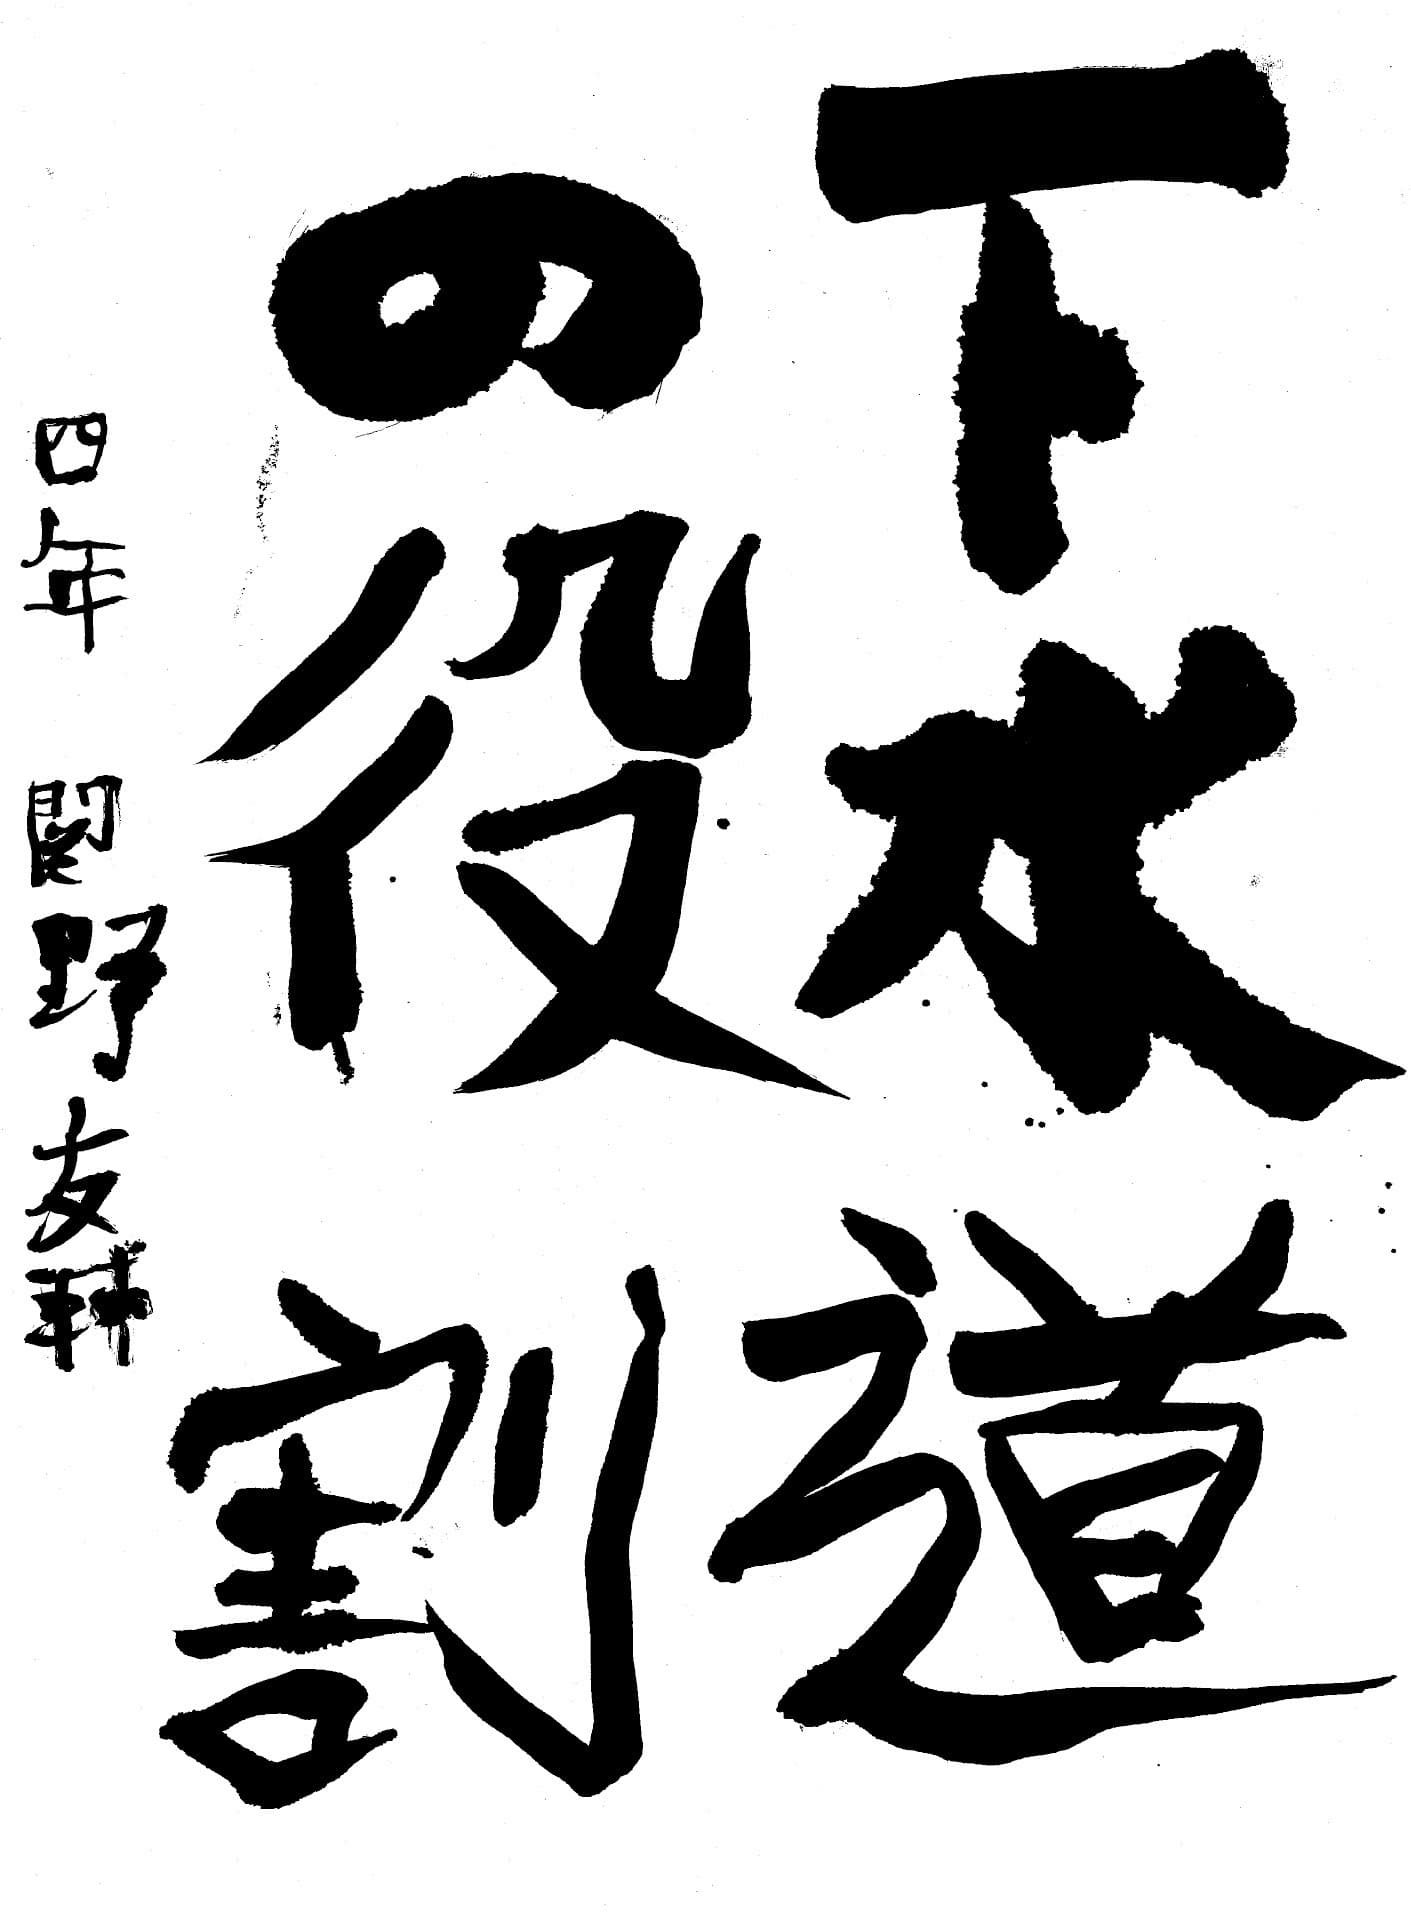 下水道
の役割
四年 関野友耕